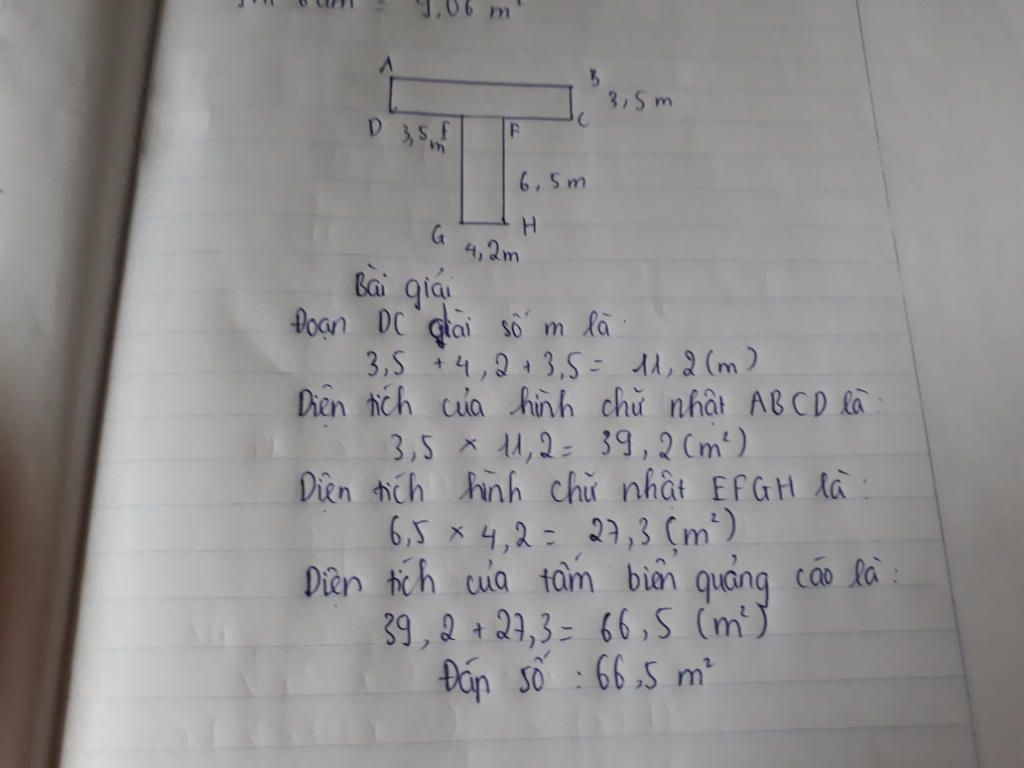 = 9,06 m²
A
B
3,5 m
D
3,5 m
F
C
6,5 m
G
H
4,2m
Bài giải
Đoạn DC dài số m là:
3,5 + 4,2 + 3,5 = 11,2 (m)
Diện tích của hình chữ nhật ABCD là:
3,5 × 11,2 = 39,2 (m²)
Diện tích hình chữ nhật EFGH là:
6,5 × 4,2 = 27,3 (m²)
Diện tích của tấm biển quảng cáo là:
39,2 + 27,3 = 66,5 (m²)
Đáp số : 66,5 m²